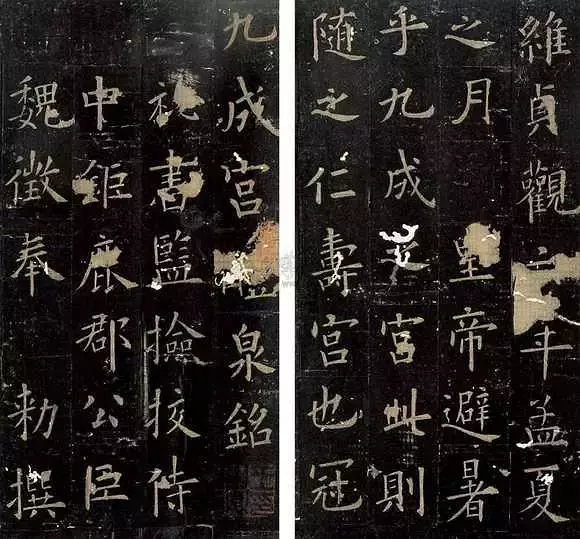 九成宮泉銘
祕書監撿挍侍
中鉅鹿郡公臣
魏徵奉 勑撰
維貞觀年孟夏
之月 皇帝避暑
乎九成之宮此則
随之仁壽宮也冠